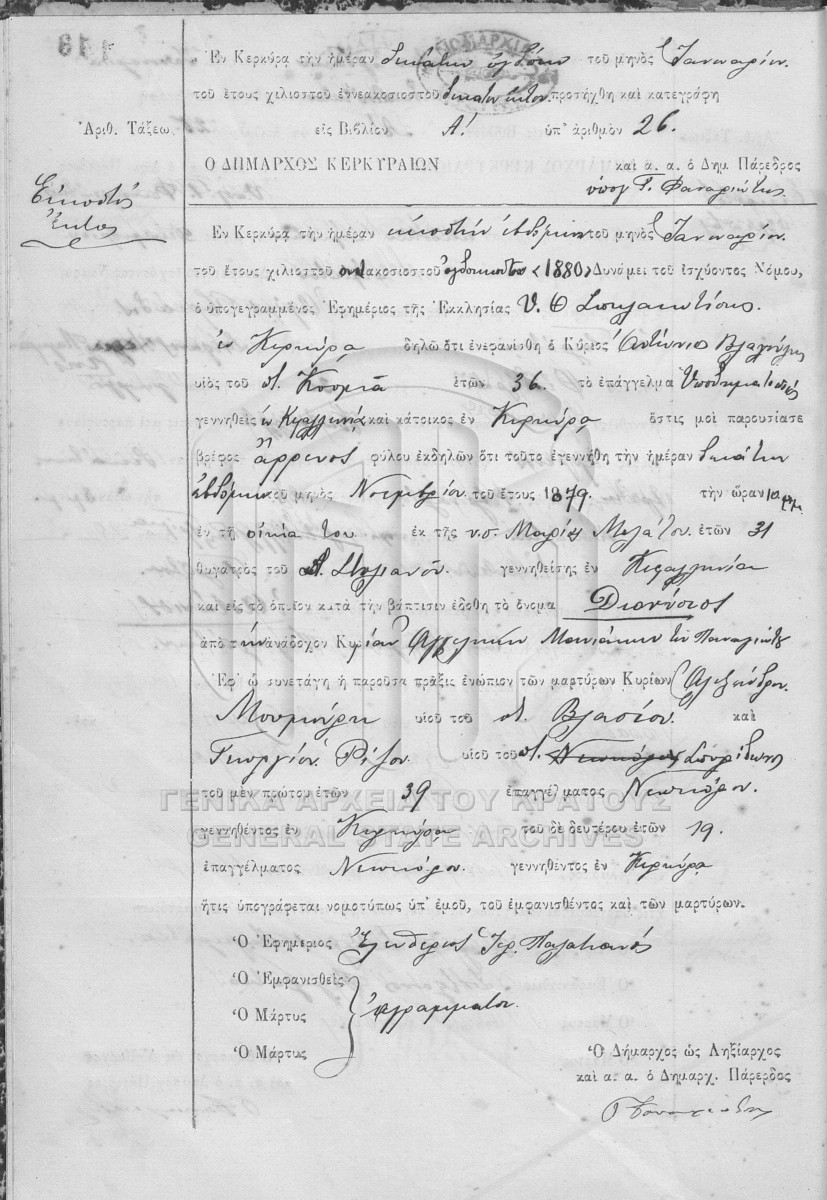 113
Ἐν Κερκύρᾳ τὴν ἡμέραν δεκάτην ὀγδόην τοῦ μηνὸς Ἰανουαρίου
τοῦ ἔτους χιλιοστοῦ ἐννεακοσιοστοῦ δεκάτου ἕκτου προσήχθη καὶ κατεγράφη
Ἀριθ. Τάξεω. εἰς Βιβλίον Α! ὑπ' ἀριθμὸν 26.
Ο ΔΗΜΑΡΧΟΣ ΚΕΡΚΥΡΑΙΩΝ καὶ ἀ. ἀ. ὁ Δημ. Πάρεδρος
Εἰκοστὸς ὑπογ Γ. Φαναριώτης
ἕκτος
Ἐν Κερκύρᾳ τὴν ἡμέραν εἰκοστὴν ἑβδόμην τοῦ μηνὸς Ἰανουαρίου
τοῦ ἔτους χιλιοστοῦ ὀκτακοσιοστοῦ ὀγδοηκοστοῦ (1880) Δυνάμει τοῦ ἰσχύοντος Νόμου,
ὁ ὑπογεγραμμένος Ἐφημέριος τῆς Ἐκκλησίας Υ. Θ Σπηλαιωτίσης
ἐν Κερκύρᾳ δηλῶ ὅτι ἐνεφανίσθη ὁ Κύριος Ἀντώνιος
υἱὸς τοῦ π. Κοσμᾶ ἐτῶν 36. τὸ ἐπάγγελμα Ὑποδηματοποιὸς
γεννηθεὶς ἐν Κεφαλληνίᾳ καὶ κάτοικος ἐν Κερκύρᾳ ὅστις μοὶ παρουσίασε
βρέφος ἄρρενος φύλου ἐκδηλῶν ὅτι τοῦτο ἐγεννήθη τὴν ἡμέραν δεκάτην
ἑβδόμην τοῦ μηνὸς Νοεμβρίου τοῦ ἔτους 1879. τὴν ὥραν
ἐν τῇ οἰκίᾳ του ἐκ τῆς ν.σ. Μαρίας ἐτῶν 31
θυγατρὸς τοῦ π. Στυλιανοῦ γεννηθείσης ἐν Κεφαλληνίᾳ
καὶ εἰς τὸ ὁποῖον κατὰ τὴν βάπτισιν ἐδόθη τὸ ὄνομα Διονύσιος
ἀπὸ τὴν ἀνάδοχον Κυρίαν Ἀγγελικὴν τοῦ Παναγιώτου
Ἐφ' ᾧ συνετάγη ἡ παροῦσα πρᾶξις ἐνώπιον τῶν μαρτύρων Κυρίων Ἀλεξάνδρου
υἱοῦ τοῦ π. Βλασίου καὶ
Γεωργίου Ρίζου υἱοῦ τοῦ π. Σπυρίδωνος
τοῦ μὲν πρώτου ἐτῶν 39 ἐπαγγέλματος Νεωκόρου
ΓΕΝΙΚΑ ΑΡΧΕΙΑ ΤΟΥ ΚΡΑΤΟΥΣ
γεννηθέντος ἐν Κερκύρᾳ τοῦ δὲ δευτέρου ἐτῶν 19.
GENERAL STATE ARCHIVES
ἐπαγγέλματος Νεωκόρου γεννηθέντος ἐν Κερκύρᾳ
ἥτις ὑπογράφεται νομοτύπως ὑπ' ἐμοῦ, τοῦ ἐμφανισθέντος καὶ τῶν μαρτύρων.
Ὁ Ἐφημέριος Ἐλευθέριος Ἱερ. Παλατιανὸς
Ὁ Ἐμφανισθεὶς
Ὁ Μάρτυς ἀγράμματοι
Ὁ Μάρτυς
Ὁ Δήμαρχος ὡς Ληξίαρχος
καὶ ἀ. ἀ. ὁ Δημαρχ. Πάρεδρος